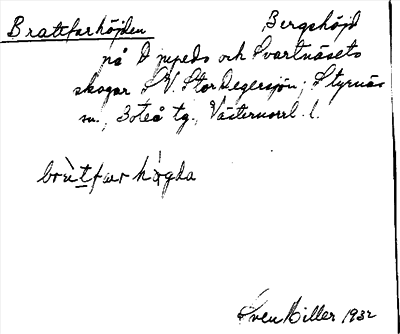 Brattfarhöjden Bergshöjd
på Djupeds och Svartnäsets
skogar S.V. Stor Degersjön; Styrnäs
sn., Boteå tg., Västernorrl. l.
Sven Hiller 1932